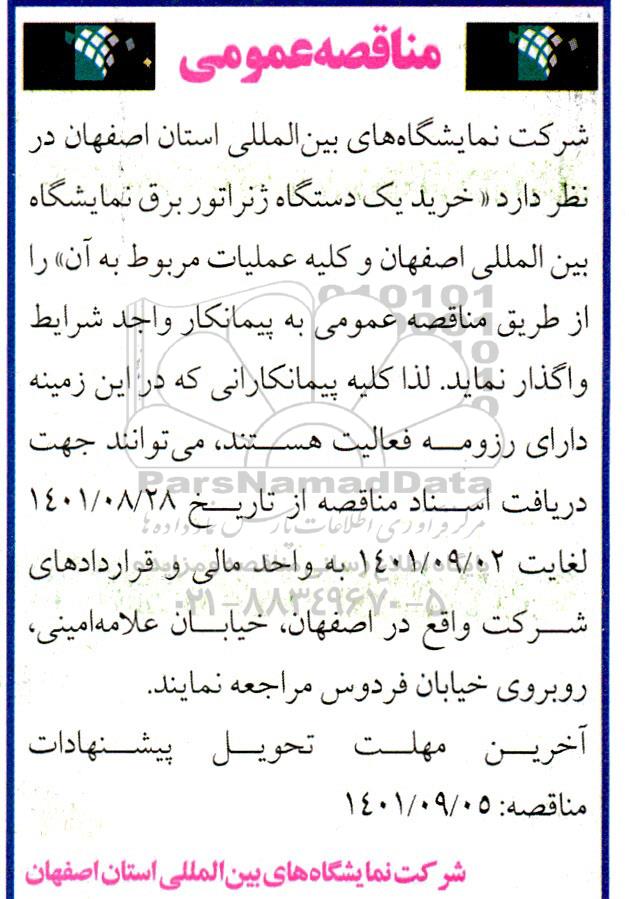 مناقصه عمومی
شرکت نمایشگاه‌های بین‌المللی استان اصفهان در
نظر دارد «خرید یک دستگاه ژنراتور برق نمایشگاه
بین المللی اصفهان و کلیه عملیات مربوط به آن» را
از طریق مناقصه عمومی به پیمانکار واجد شرایط
واگذار نماید. لذا کلیه پیمانکارانی که در این زمینه
دارای رزومه فعالیت هستند، می‌توانند جهت
دریافت اسناد مناقصه از تاریخ ۱۴۰۱/۰۸/۲۸
لغایت ۱۴۰۱/۰۹/۰۲ به واحد مالی و قراردادهای
شرکت واقع در اصفهان، خیابان علامه‌امینی،
روبروی خیابان فردوس مراجعه نمایند.
آخرین مهلت تحویل پیشنهادات
مناقصه: ۱۴۰۱/۰۹/۰۵
شرکت نمایشگاه‌های بین‌المللی استان اصفهان
ParsNamadData
مرکز فرآوری اطلاعات پارس نماد داده‌ها
۰۲۱-۸۸۳۴۹۶۷۰-۵